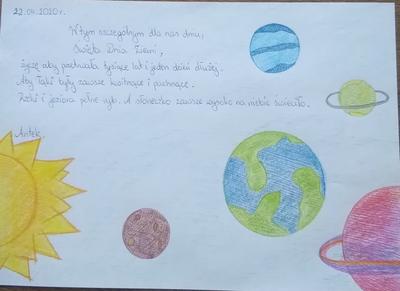 22.04.2020r.
W tym szczególnym dla nas dniu,
Święta Dnia Ziemi,
życzę aby przetrwała tysiące lat i jeden dzień dłużej.
Aby łąki były zawsze kwitnące i pachnące.
Rzeki i jeziora pełne ryb. A słoneczko zawsze wysoko na niebie świeciło.
Antek.